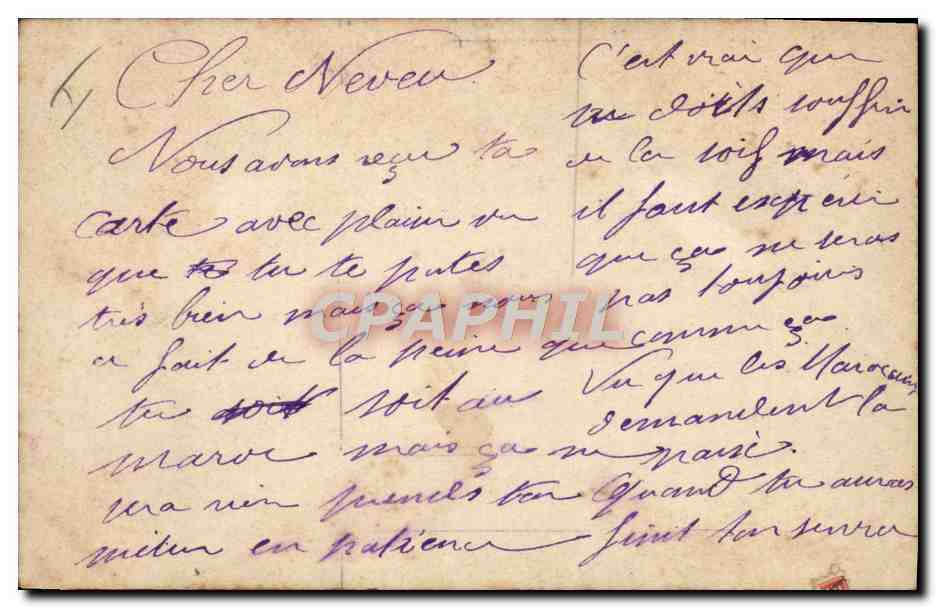 Cher Neveu
Nous avons reçu ta
carte avec plaisir vu
que tu te portes
très bien mais ça nous
a fait de la peine que
tu soit au
maroc mais ça ne
sera rien prends ton
mileu en patience
C'est vrai que
tu doits souffrir
de la soif mais
il faut expérer
que ça ne seras
pas toujours
comme ça
Vu que les Marocains
demandent la
paix.
Quand tu auras
finit ton servic
CPAPHIL